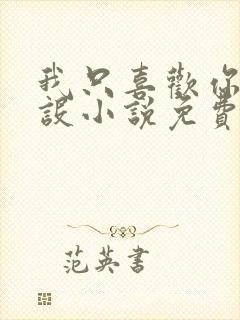 我只喜歡你
設小說免費
范英書